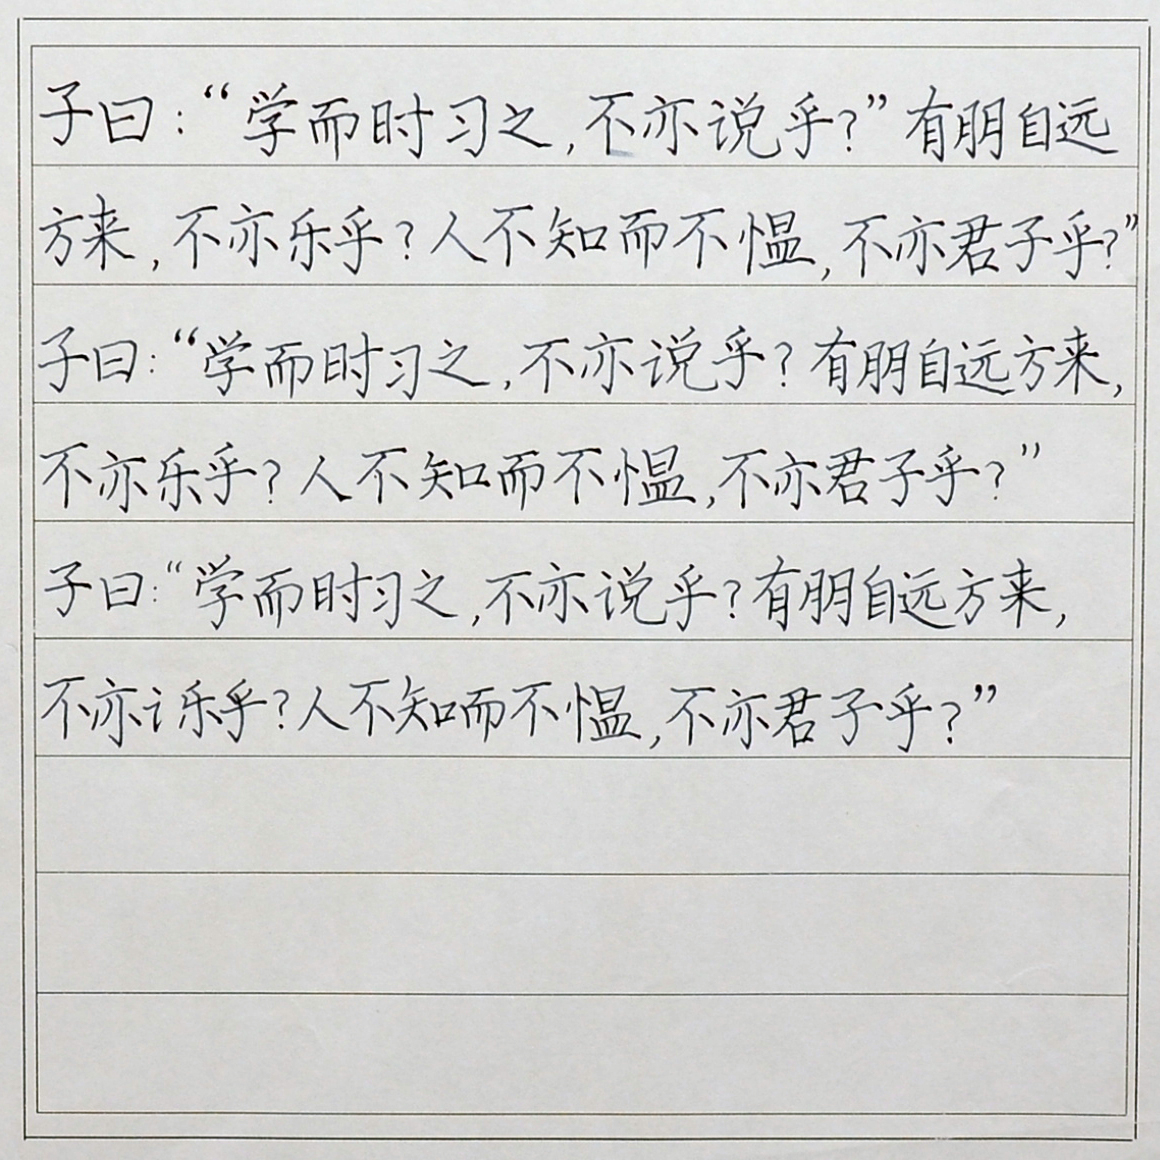 子曰：“学而时习之，不亦说乎？”有朋自远
方来，不亦乐乎？人不知而不愠，不亦君子乎？”
子曰：“学而时习之，不亦说乎？有朋自远方来，
不亦乐乎？人不知而不愠，不亦君子乎？”
子曰：“学而时习之，不亦说乎？有朋自远方来，
不亦讠乐乎？人不知而不愠，不亦君子乎？”